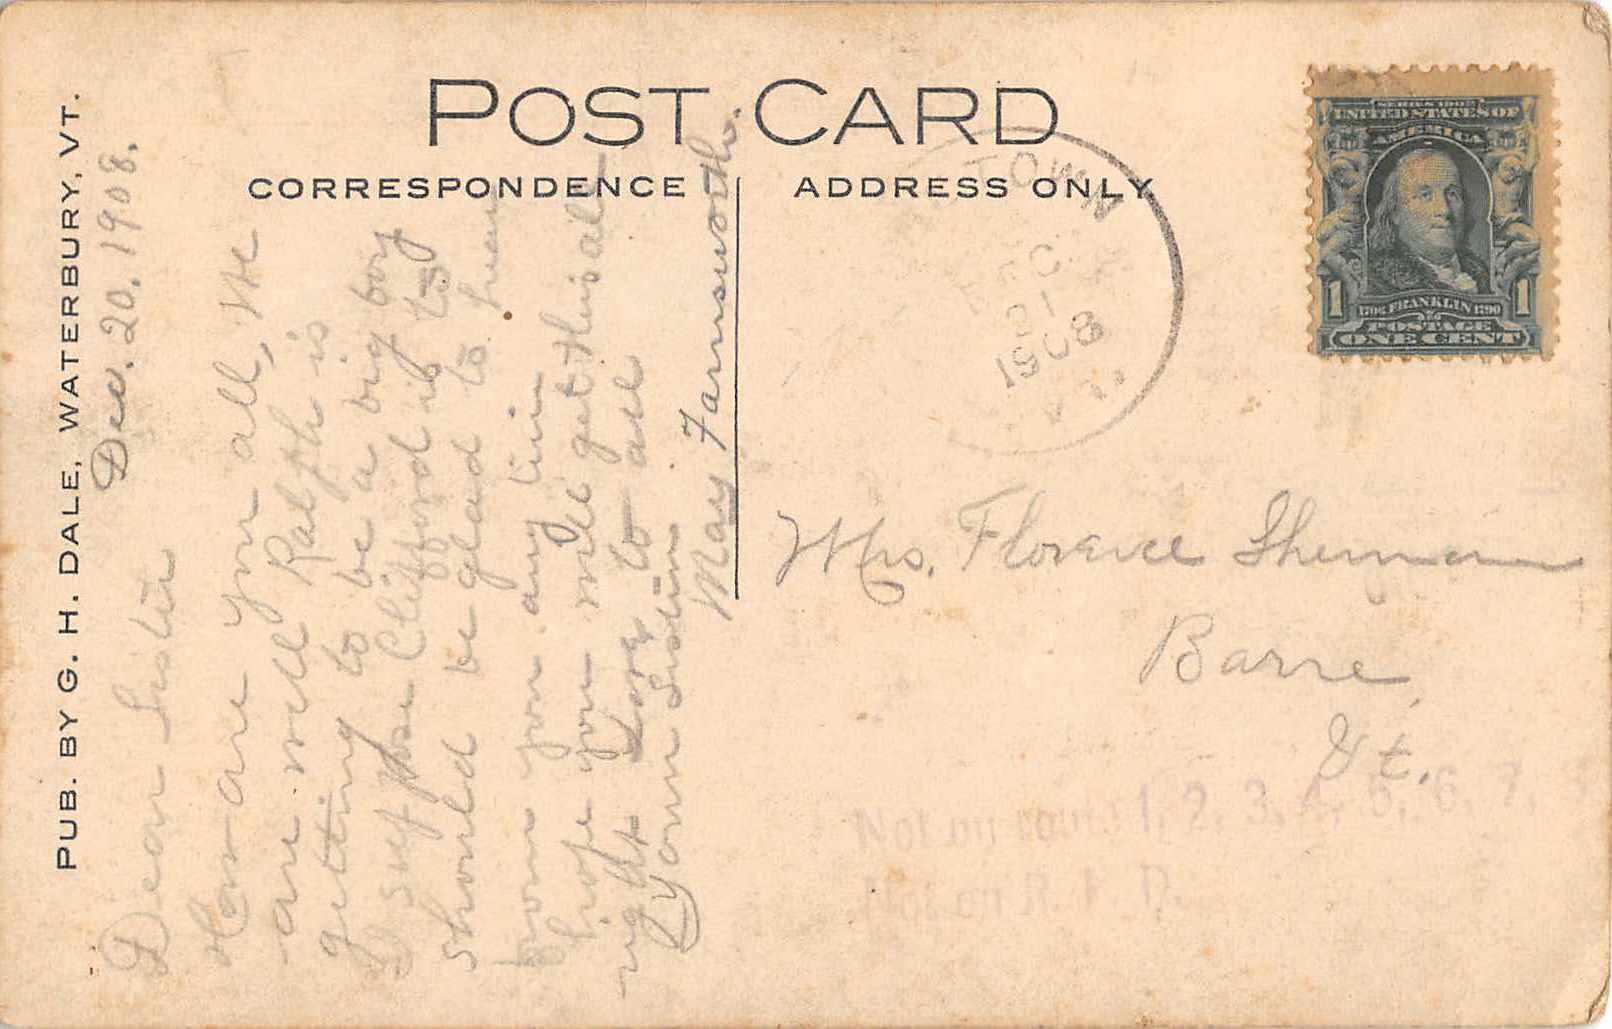 POST CARD
CORRESPONDENCE
ADDRESS ONLY
PUB. BY G. H. DALE, WATERBURY, VT.
Dec. 20. 1908.
Dear Sister
How are you all, We
are well Ralph is
getting to be a big boy
I suppose Clifford is to
should be glad to hear
from you any time
hope you will get this all
right Love to all
Your Sister
May Farnsworth.
TOWN
DEC
21
1908
VT.
SERIES 1902
UNITED STATES OF
AMERICA
1 1706 FRANKLIN 1790 1
POSTAGE
ONE CENT
Mrs. Florence Sherman
Barre,
Vt.
Not on route 1, 2, 3, 4, 5, 6, 7,
Not on R. F. D.